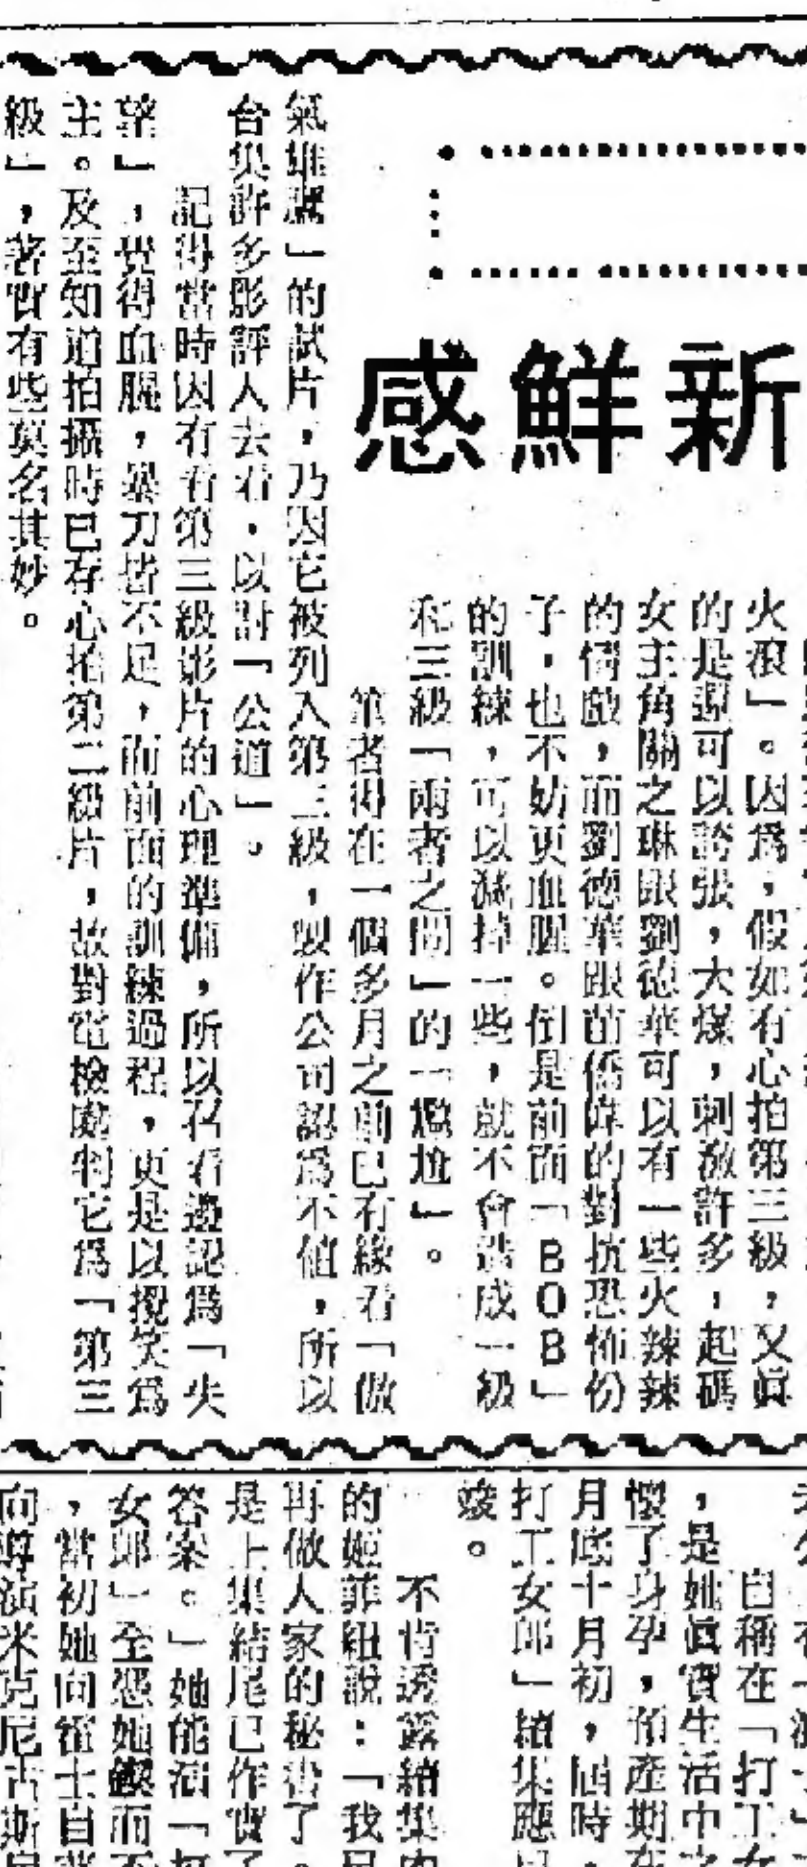 新鮮感
火滾」。因爲，假如有心拍第三級，又眞
的是還可以誇張，大煤，刺激許多，起碼
女主角關之琳跟劉德華可以有一些火辣辣
的情戲，而劉德華跟苗僑偉的對抗恐怖份
子，也不妨更血腥。倒是前面「ＢＯＢ」
的訓練，可以減掉一些，就不會造成一級
和三級「兩者之間」的「尷尬」。
筆者得在一個多月之前已有緣看「傲
氣雄鷹」的試片，乃因它被列入第三級，製作公司認爲不值，所以
台集許多影評人去看，以討「公道」。
記得當時因有看第三級影片的心理準備，所以召看過認爲「失
望」，覺得血腥，暴力皆不足，而前面的訓練過程，更是以攪笑爲
主。及至知道拍攝時已存心拍第二級片，故對電檢處判它爲「第三
級」，著實有些莫名其妙。
自稱在「打工女
，是她眞實生活中
懷了身孕，預產期在
月底十月初，屆時，
打工女郎」續集應
竣。
不肯透露續集內
的姬菲紐說：「我
再做人家的秘書了。
是上集結尾已作實了
答案。」她能演「打
女郎」全憑她鍥而不
，當初她向霍士自
向導演米克尼古斯